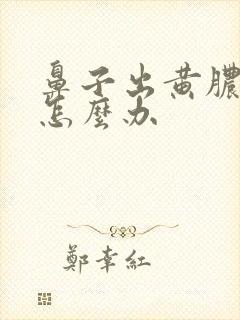 鼻子出黄膿
怎麼办
鄭幸紅